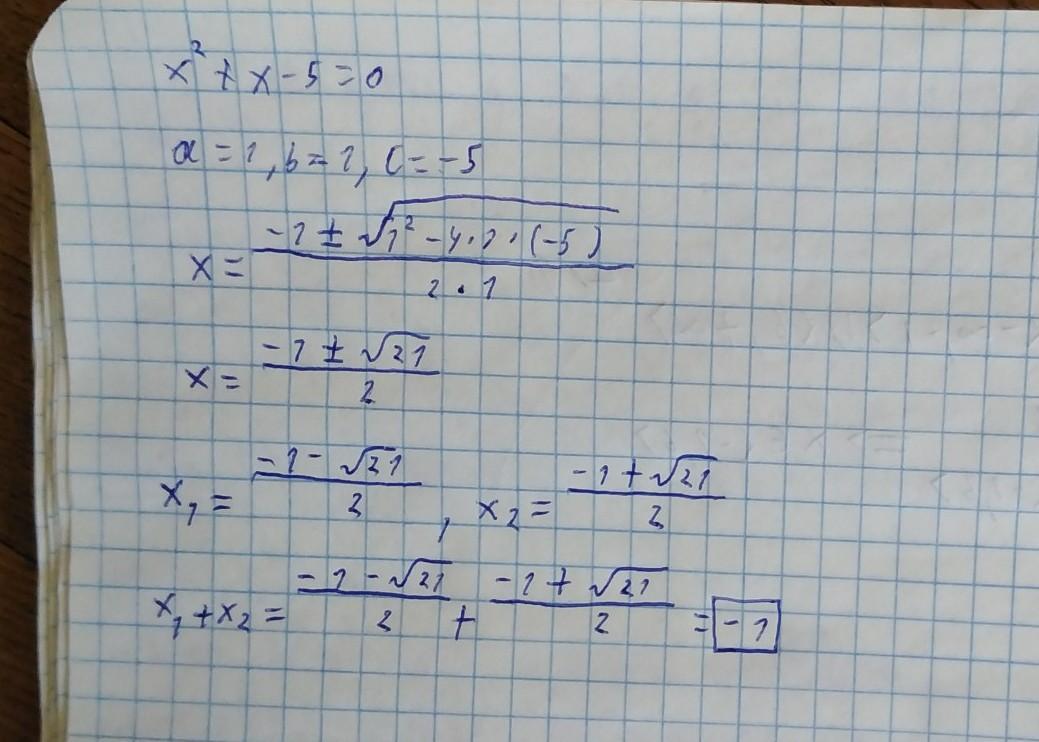 x² + x - 5 = 0
a = 1, b = 1, c = -5
x = (-1 ± √(1² - 4·1·(-5))) / (2·1)
x = (-1 ± √21) / 2
x₁ = (-1 - √21) / 2, x₂ = (-1 + √21) / 2
x₁ + x₂ = (-1 - √21) / 2 + (-1 + √21) / 2 = -1